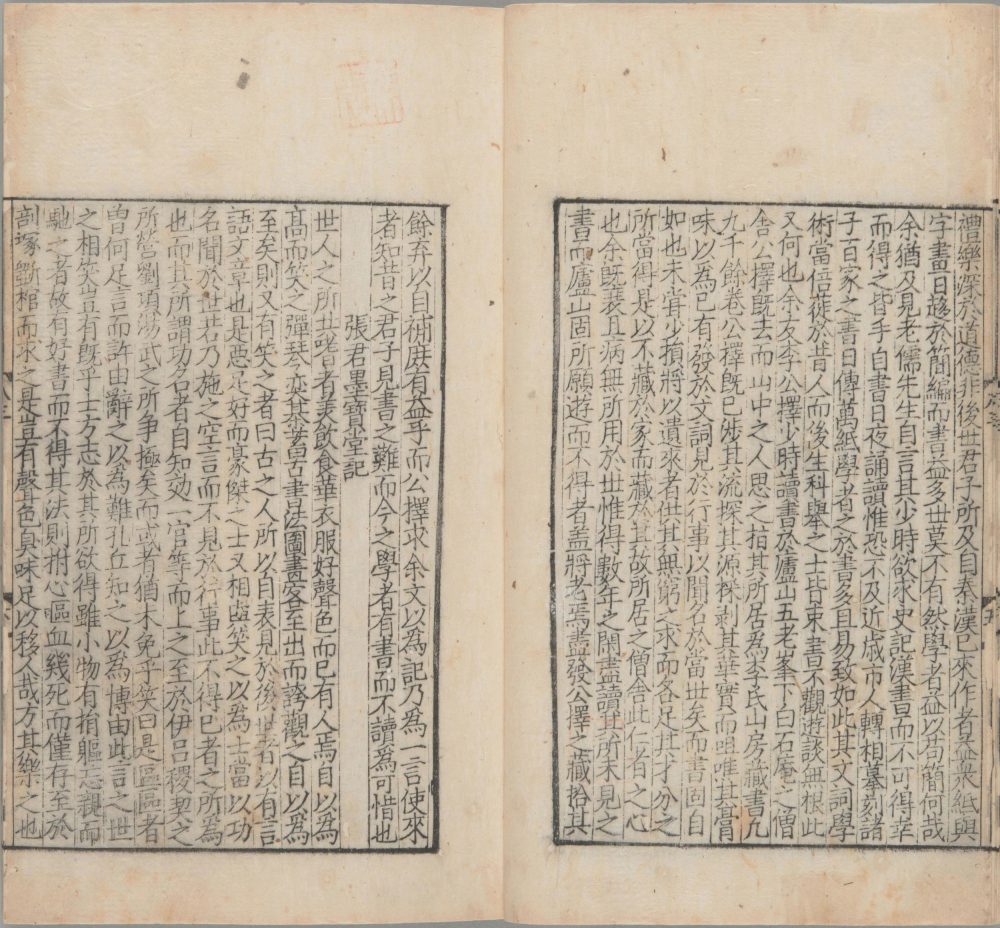 禮樂深於道德非後世君子所及自秦漢已來作者益衆紙與
字畫日趍於簡編而書益多世莫不有然學者益以苟簡何哉
余猶及見老儒先生自言其少時欲求史記漢書而不可得幸
而得之皆手自書日夜誦讀惟恐不及近歲市人轉相摹刻諸
子百家之書日傳萬紙學者之於書多且易致如此其文詞學
術當倍蓰於昔人而後生科舉之士皆束書不觀遊談無根此
又何也余友李公擇少時讀書於廬山五老峯下白石庵之僧
舍公擇既去而山中之人思之指其所居為李氏山房藏書凡
九千餘卷公擇既已涉其流探其源採剥其華實而咀唯其膏
味以為己有發於文詞見於行事以聞名於當世矣而書固自
如也未甞少損將以遺來者供其無窮之求而各足其才分之
所當得是以不藏於家而藏於其故所居之僧舍此仁者之心
也余既衰且病無所用於世惟得數年之閑盡讀其所未見之
書而廬山固所願遊而不得者盖將老焉盡發公擇之藏拾其
餘弃以自補庶有益乎而公擇求余文以為記乃為一言使來
者知昔之君子見書之難而今之學者有書而不讀為可惜也
張君墨寶堂記
世人之所共嗜者美飲食華衣服好聲色而已有人焉自以為
高而笑之彈琴弈棊蓄古書法圖畫客至出而誇觀之自以為
至矣則又有笑之者曰古之人所以自表見於後世者以有言
語文章也是惡足好而豪傑之士又相笑之以為士當以功
名聞於世若乃施之空言而不見於行事此不得已者之所為
也而其所謂功名者自知効一官等而上之至於伊呂稷契之
所營劉項湯武之所争極矣而或者猶未免乎笑曰是區區者
曾何足言而許由辭之以為難孔丘知之以為博由此言之世
之相笑豈有既乎士方志於其所欲得雖小物有捐軀忘親而
馳之者故有好書而不得其法則拊心嘔血幾死而僅存至於
剖塚斲棺而求之是豈有聲色臭味足以移人哉方其樂之也